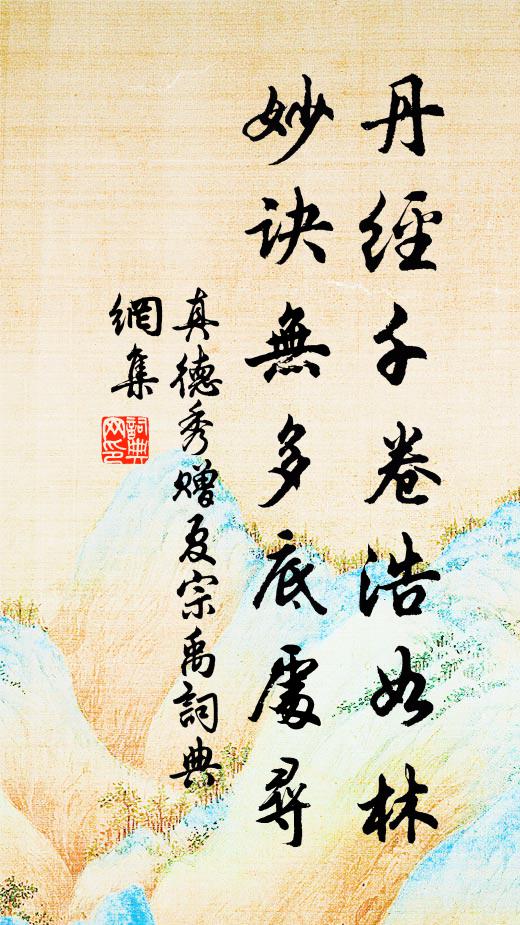 丹經千卷浩如林
妙訣無多底處尋
真德秀贈夏宗禹詞典
網集
詞典
网印